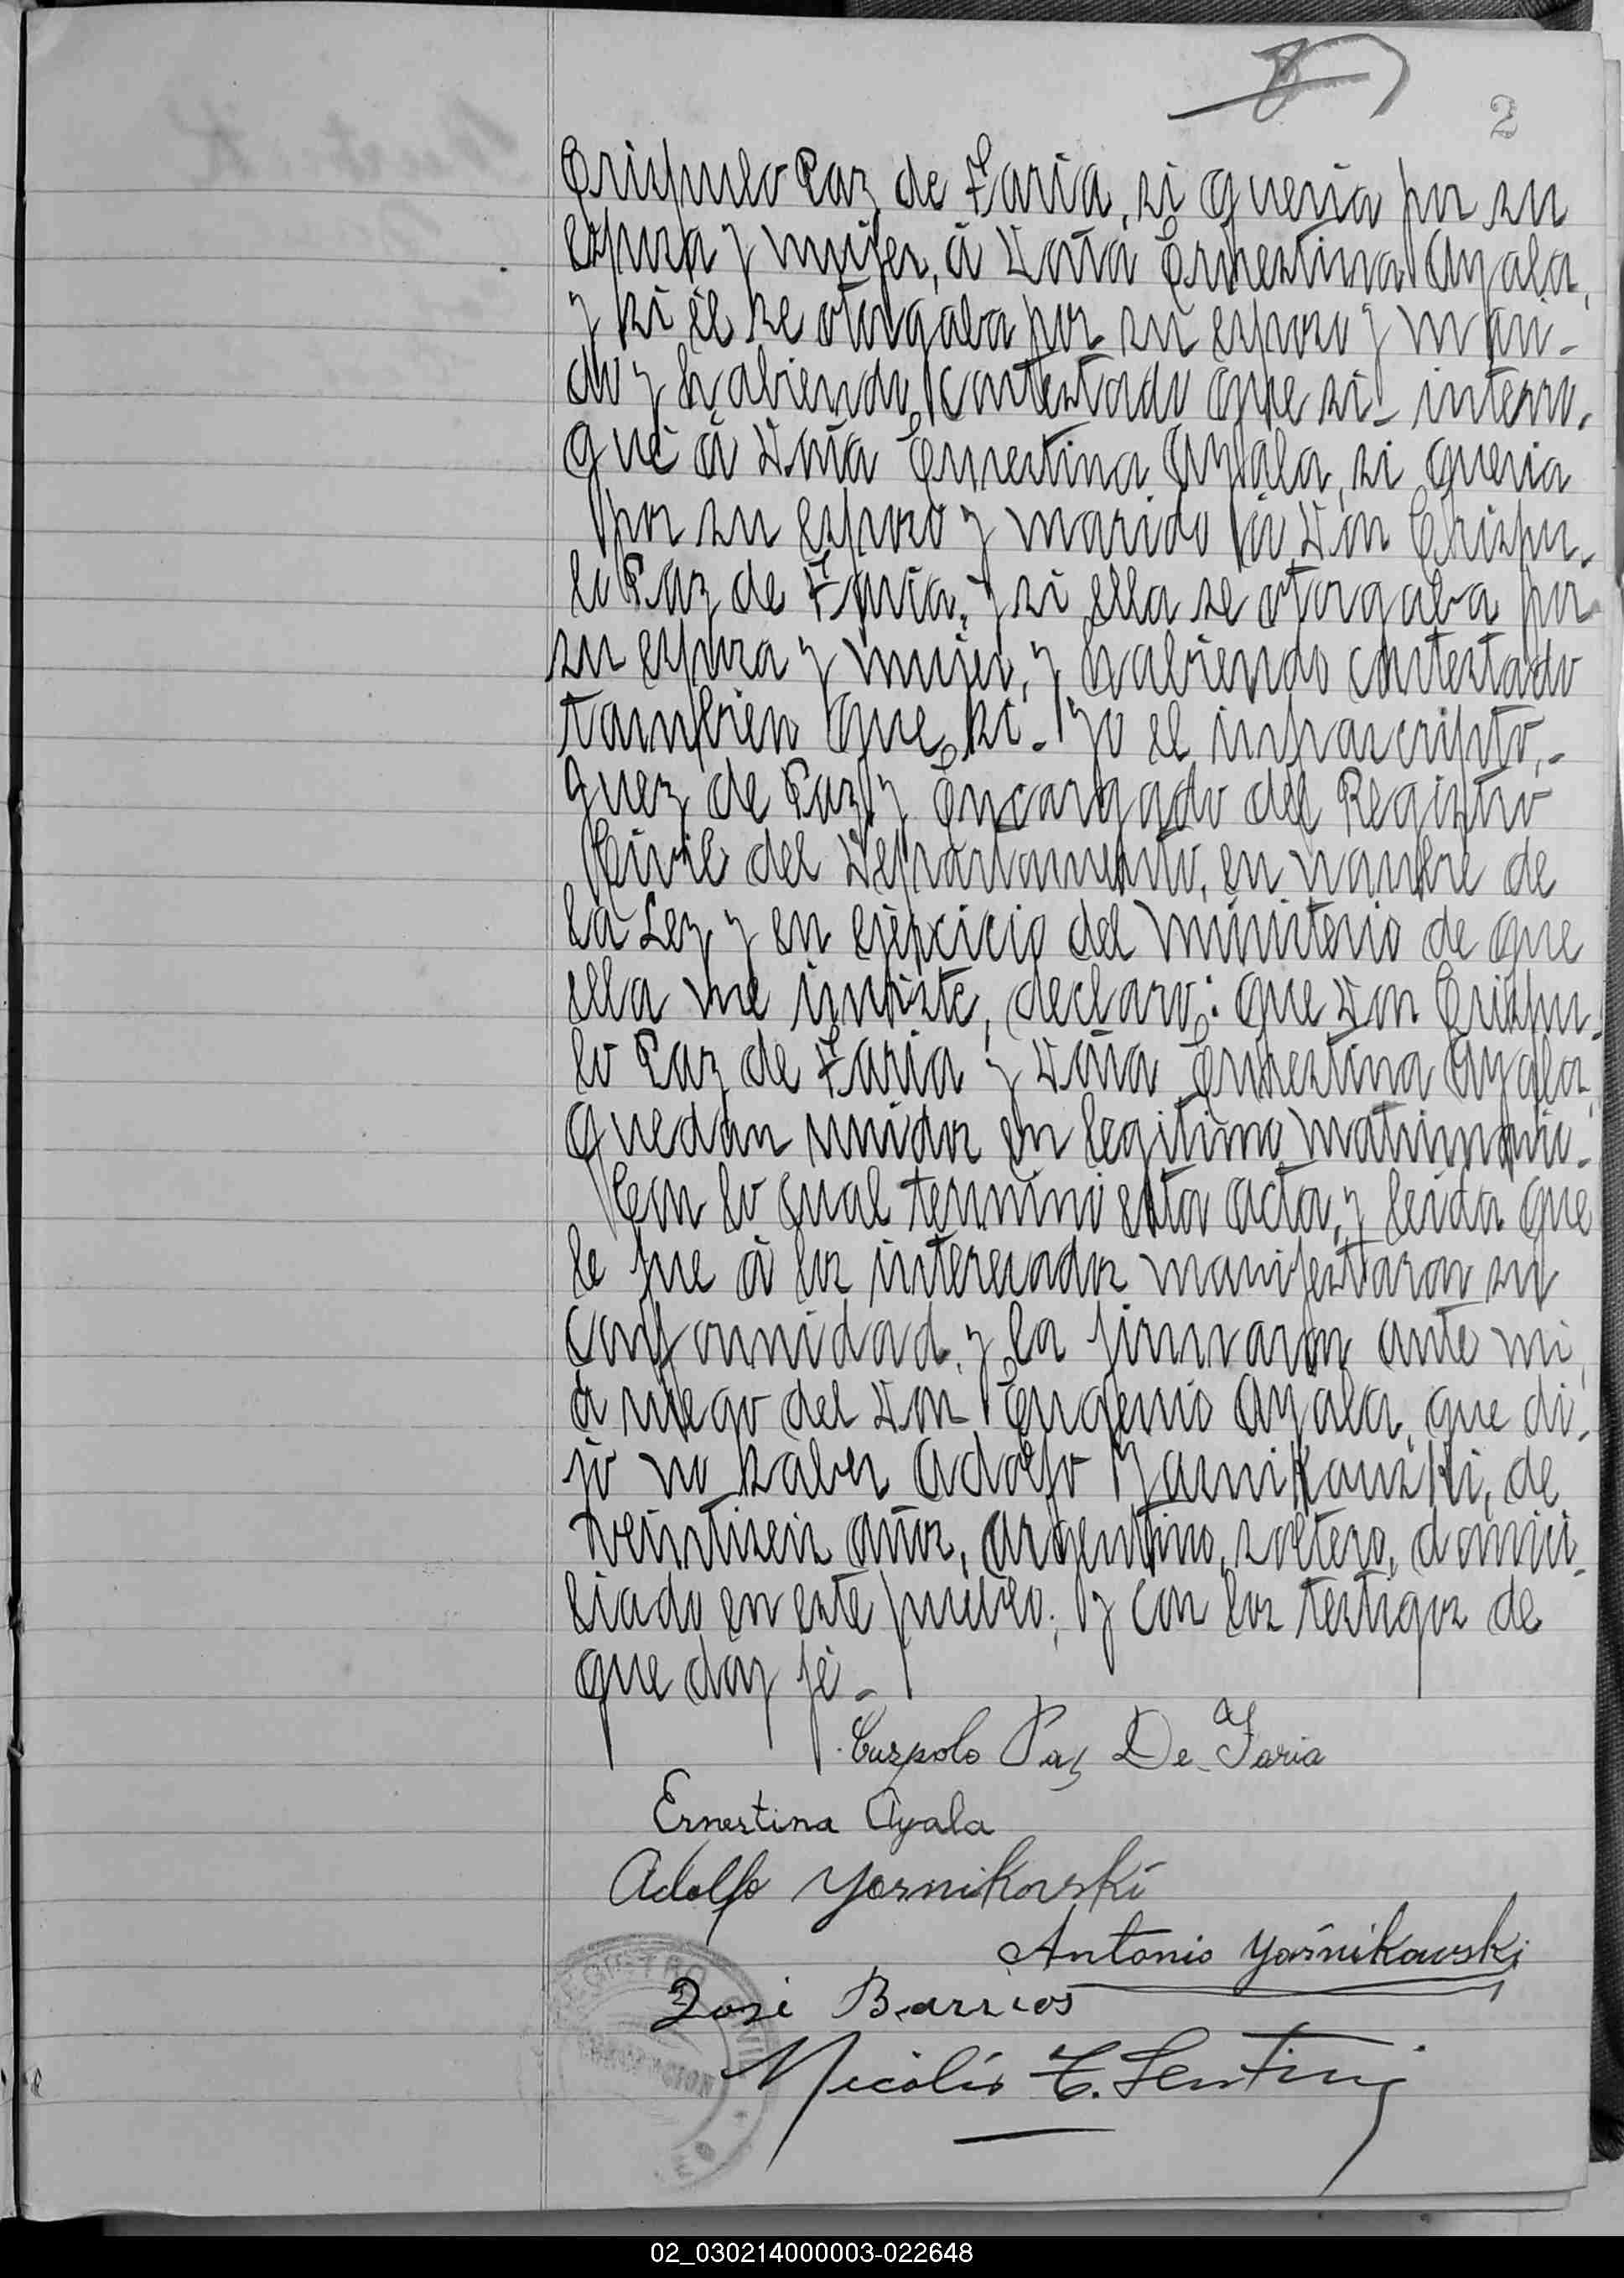 2
Crispulo Paz de Faria, si queria por su
esposa y mujer, á Doña Ernestina Ayala,
y si él se otorgaba por su esposo y mari-
do y habiendo contestado que si- interro-
gué á Doña Ernestina Ayala, si queria
por su esposo y marido á Don Crispu-
lo Paz de Faria, y si ella se otorgaba por
su esposa y mujer, y habiendo contestado
tambien que si- Yo el infrascripto,-
Juez de Paz y Encargado del Registro
Civil del Departamento, en nombre de
la Ley y en ejercicio del ministerio de que
ella me inviste, declaro: que Don Crispu-
lo Paz de Faria y Doña Ernestina Ayala,
quedan unidos en legitimo matrimonio-
Con lo qual terminó esta acta, y leida que
le fue á los interesados manifestaron su
conformidad, y la firmaron ante mi,
á ruego del Don Eugenio Ayala, que di-
jo no saber Adolfo Yarnikouski, de
veintiseis años, argentino, soltero, domici-
liado en este pueblo; y con los testigos de
que doy fé-
Cuzpolo Paz De Faria
Ernestina Ayala
Adolfo Yarnikovski
Antonio Yarnikowski
José Barrios
Nicolás
REGISTRO CIVIL
02_030214000003-022648